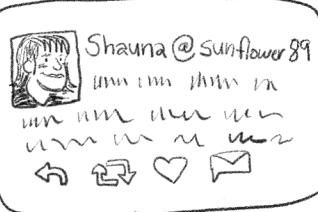 Shauna @sunflower89